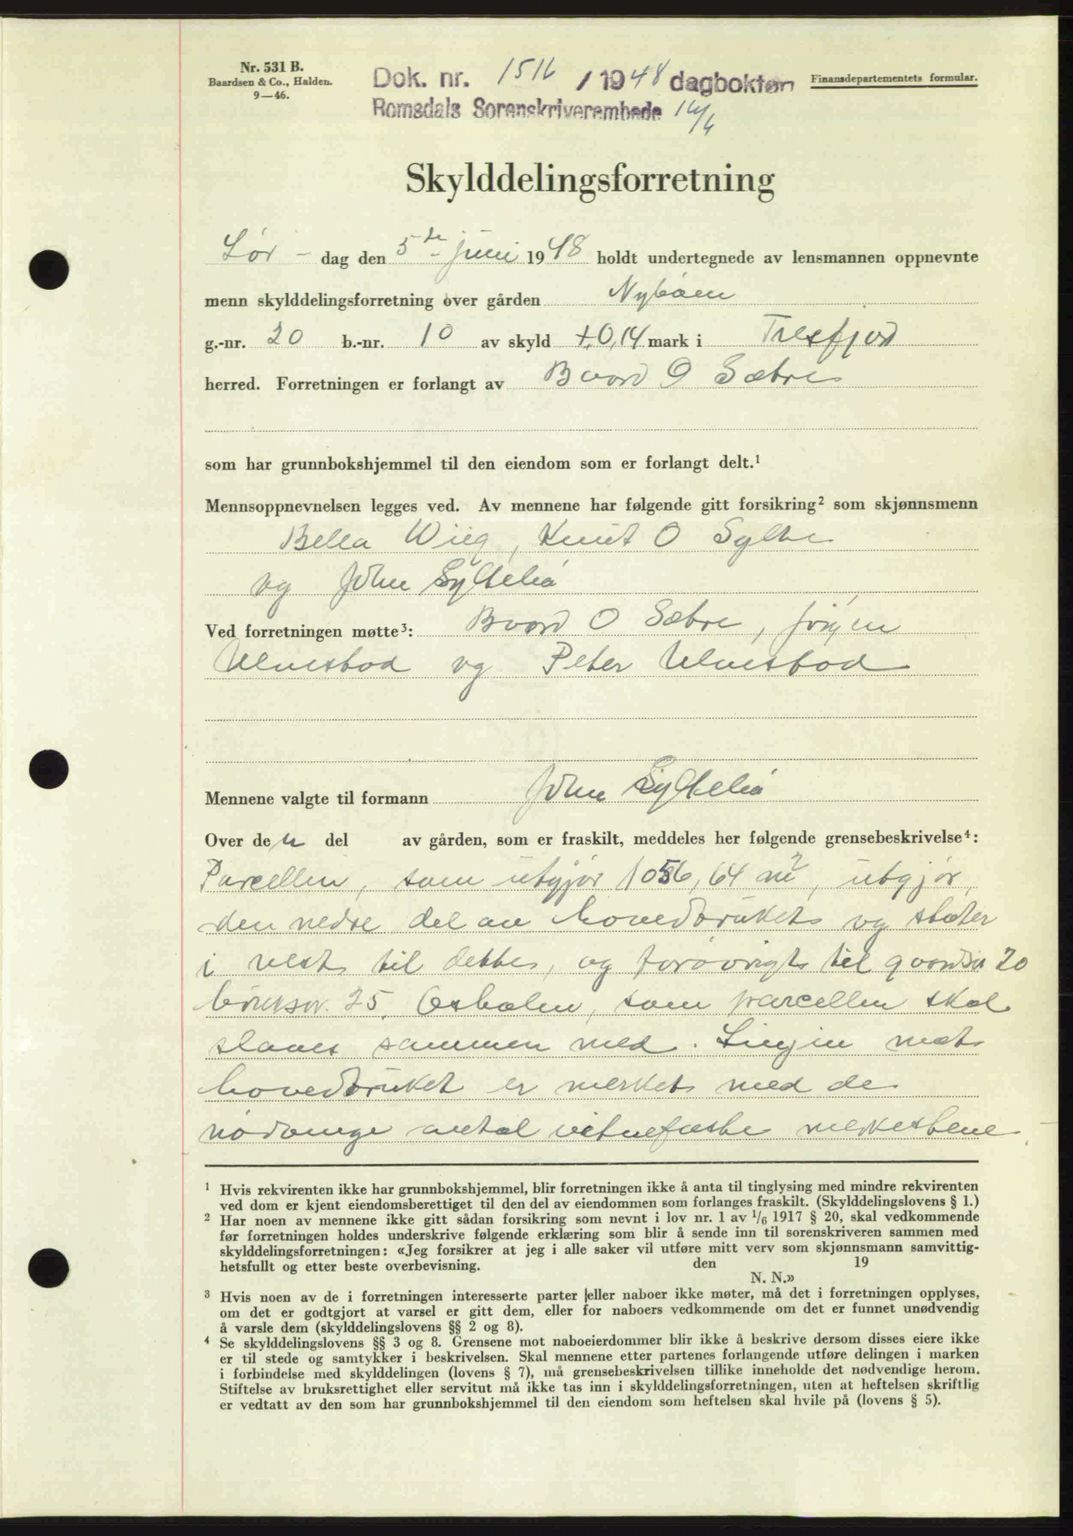 Nr. 531 B.
Baardsen & Co., Halden.
9—46.
Dok. nr. 1516 / 1948 dagboken
Romsdals Sorenskriverembede 16/6
Finansdepartementets formular.
Skylddelingsforretning
Lør- dag den 5te juni 1948 holdt undertegnede av lensmannen oppnevnte
menn skylddelingsforretning over gården Nybøen
g.-nr. 20 b.-nr. 10 av skyld 0,14 mark i Tresfjord
herred. Forretningen er forlangt av Baard O Sæbre
som har grunnbokshjemmel til den eiendom som er forlangt delt.¹
Mennsoppnevnelsen legges ved. Av mennene har følgende gitt forsikring² som skjønnsmenn
Bella Wiig, Knut O Sylte
og John Syltelia
Ved forretningen møtte³: Baard O Sæbre, Jørgen
Ulvestad og Peter Ulvestad
Mennene valgte til formann John Syltelia
Over den del av gården, som er fraskilt, meddeles her følgende grensebeskrivelse⁴:
Parcellen, som utgjør 1056,64 m², utgjør
den nedre del av hovedbruket og støter
i vest til dette, og forøvrigt til gardsnr 20
bruksnr. 25, som parcellen skal
slaaes sammen med. Linjen mot
hovedbruket er merket med de
nødvendige antal vitnefaste merkestene
¹ Hvis rekvirenten ikke har grunnbokshjemmel, blir forretningen ikke å anta til tinglysing med mindre rekvirenten
ved dom er kjent eiendomsberettiget til den del av eiendommen som forlanges fraskilt. (Skylddelingslovens § 1.)
² Har noen av mennene ikke gitt sådan forsikring som nevnt i lov nr. 1 av 1/6 1917 § 20, skal vedkommende
før forretningen holdes underskrive følgende erklæring som blir å sende inn til sorenskriveren sammen med
skylddelingsforretningen: «Jeg forsikrer at jeg i alle saker vil utføre mitt verv som skjønnsmann samvittig-
hetsfullt og etter beste overbevisning. den 19
N. N.»
³ Hvis noen av de i forretningen interesserte parter eller naboer ikke møter, må det i forretningen opplyses,
om det er godtgjort at varsel er gitt dem, eller for naboers vedkommende om det er funnet unødvendig
å varsle dem (skylddelingslovens §§ 2 og 8).
⁴ Se skylddelingslovens §§ 3 og 8. Grensene mot naboeierdommer blir ikke å beskrive dersom disses eiere ikke
er til stede og samtykker i beskrivelsen. Skal mennene etter partenes forlangende utføre delingen i marken
i forbindelse med skylddelingen (lovens § 7), må grensebeskrivelsen tillike inneholde det nødvendige herom.
Stiftelse av bruksrettighet eller servitut må ikke tas inn i skylddelingsforretningen, uten at heftelsen skriftlig
er vedtatt av den som har grunnbokshjemmel til den eiendom som heftelsen skal hvile på (lovens § 5).